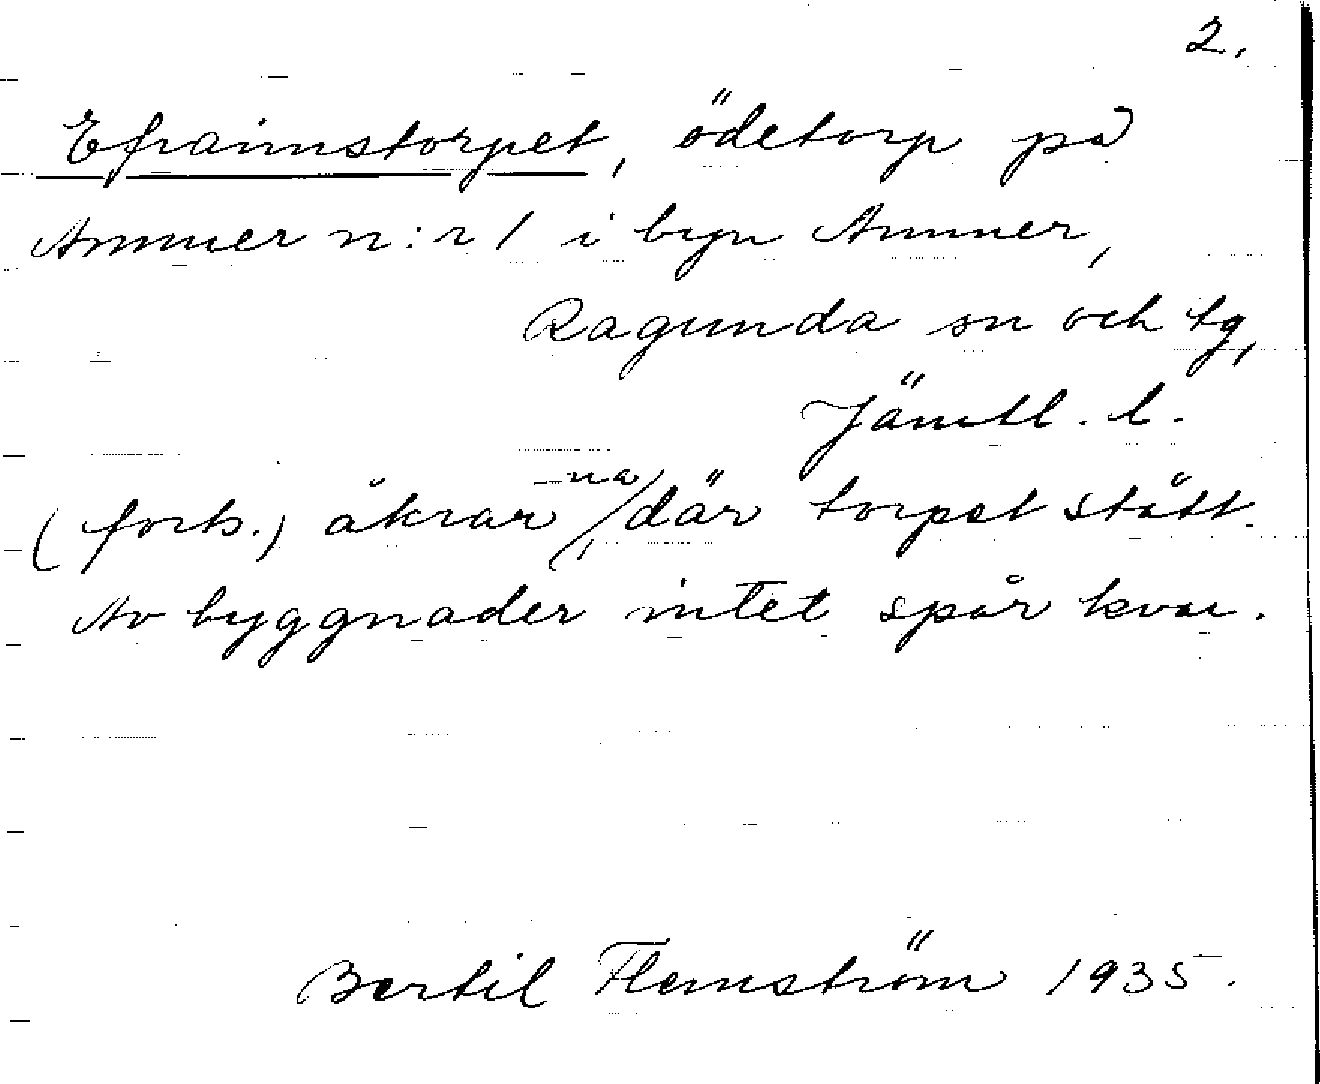 2.
Efraimstorpet, ödetorp på
Ammer n:r 1 i byn Ammer,
Ragunda sn och tg,
Jämtl. l.
(forts.) åkrarna, där torpet stått.
Av byggnader intet spår kvar.
Bertil Flemström 1935.